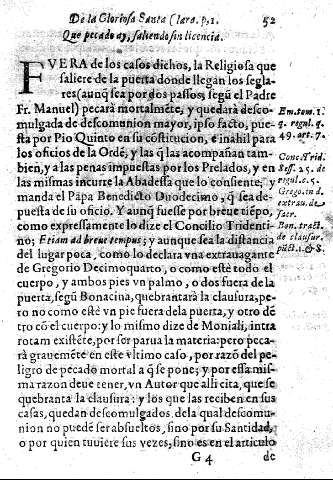 De la Gloriosa Santa Clara. p. 1. 52
Que pecado ay, saliendo sin licencia.
FVERA de los casos dichos, la Religiosa que
saliere de la puerta donde llegan los segla-
res (aunq̃ sea por dos passos, segũ el Padre
Fr. Manuel) pecarà mortalmẽte, y quedarà desco-
mulgada de descomunion mayor, ipso facto, pue-
sta por Pio Quinto en su cõstitucion, è inahil para
los oficios de la Ordẽ, y las q̃ las acompañan tam-
bien, y a las penas impuestas por los Prelados, y en
las mismas incurre la Abadessa que lo consiente, y
manda el Papa Benedicto Duodecimo, q̃ sea de-
puesta de su oficio. Y aunq̃ fuesse por breue tiẽpo,
como expressamente lo dize el Concilio Tridenti-
no; Etiam ad breue tempus; y aunque sea la distancia
del lugar poca, como lo declara vna extrauagante
de Gregorio Decimoquarto, o como estè todo el
cuerpo, y ambos pies vn palmo, o dos fuera de la
puerta, segũ Bonacina, quebrantarà la clausura, pe-
ro no como estè vn pie fuera dela puerta, y otro dẽ
tro cõ el cuerpo: y lo mismo dize de Moniali, intra
rotam existẽte, por ser parua la materia: pero peca-
rà grauemẽte en este vltimo caso, por razõ del pe-
ligro de pecado mortal a q̃ se pone; y por essa mis-
ma razon deue tener, vn Autor que alli cita, que se
quebranta la clausura: y los que las reciben en sus
casas, quedan descomulgados. de la qual descomu-
nion no puedẽ ser absueltos, sino por su Santidad,
o por quien tuuiere sus vezes, sino es en el articulo
G 4 de
Em. tom. 1.
q. regul. q.
49. art. 7.
Conc. Trid.
sess. 25. de
regul. c. 5.
Greg. in d.
extrau. de
sacr.
Bon. tract.
de clausur.
pũct. 1. & 8.